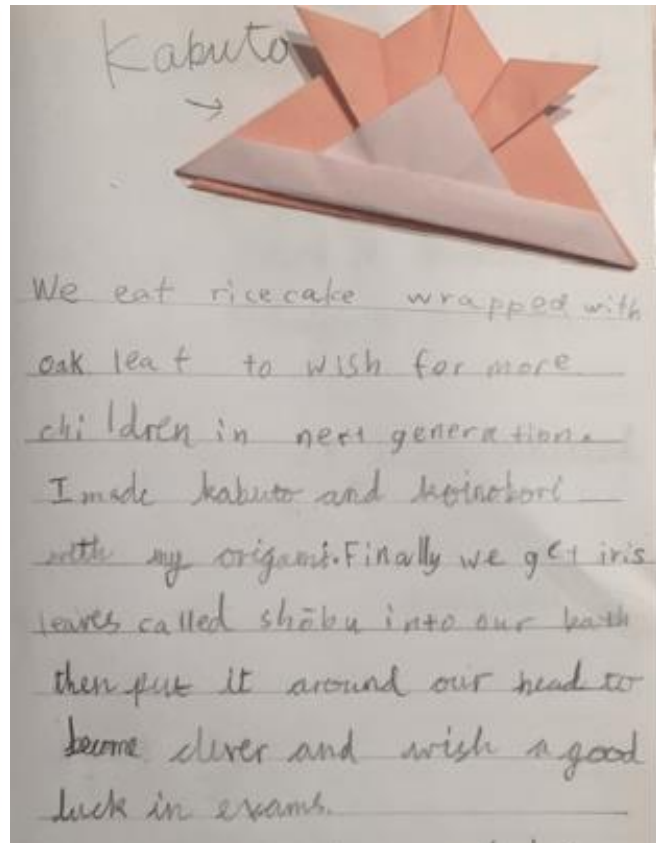 Kabuto
We eat ricecake wrapped with
oak leaf to wish for more
children in next generation.
I made kabuto and koinobori
with my origami. Finally we get iris
leaves called shōbu into our bath
then put it around our head to
become clever and wish a good
luck in exams.